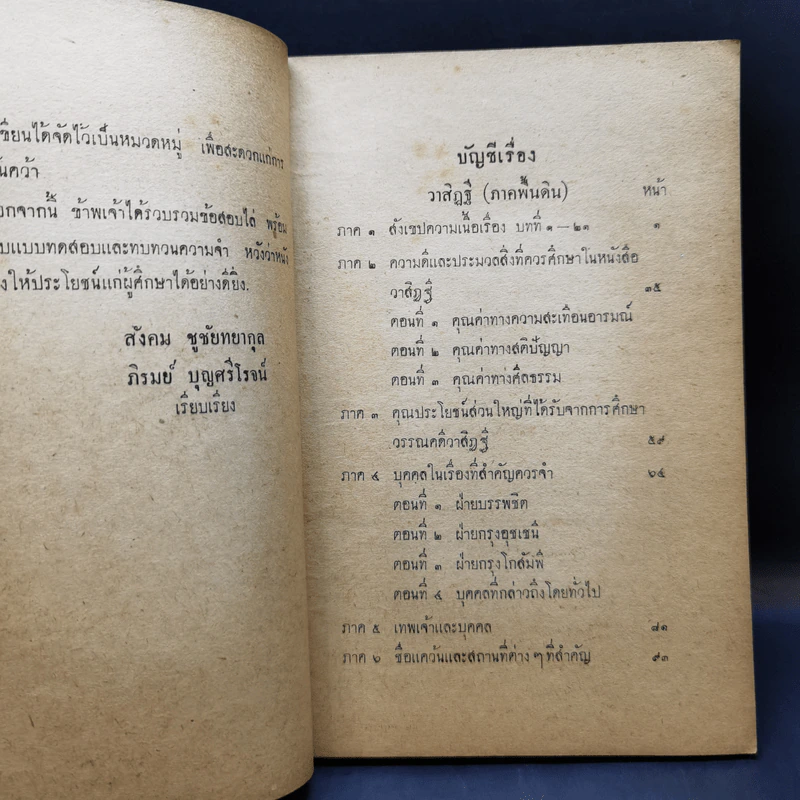 ขียนได้จัดไว้เป็นหมวดหมู่ เพื่อสะดวกแก่การ
นคว้า
อกจากนี้ ข้าพเจ้าได้รวบรวมข้อสอบไล่ พร้อม
บแบบทดสอบและทบทวนความจำ หวังว่าหนัง
งให้ประโยชน์แก่ผู้ศึกษาได้อย่างดียิ่ง.
สังคม ชูชัยทยากุล
ภิรมย์ บุญศรีโรจน์
เรียบเรียง
บัญชีเรื่อง
วาสิฏฐี (ภาคพื้นดิน) หน้า
ภาค ๑ สังเขปความเนื้อเรื่อง บทที่ ๑–๒๑ ๑
ภาค ๒ ความดีและประมวลสิ่งที่ควรศึกษาในหนังสือ
วาสิฏฐี ๓๕
ตอนที่ ๑ คุณค่าทางความสะเทือนอารมณ์
ตอนที่ ๒ คุณค่าทางสติปัญญา
ตอนที่ ๓ คุณค่าทางศีลธรรม
ภาค ๓ คุณประโยชน์ส่วนใหญ่ที่ได้รับจากการศึกษา
วรรณคดีวาสิฏฐี ๕๙
ภาค ๔ บุคคลในเรื่องที่สำคัญควรจำ ๖๔
ตอนที่ ๑ ฝ่ายบรรพชิต
ตอนที่ ๒ ฝ่ายกรุงอุชเชนี
ตอนที่ ๓ ฝ่ายกรุงโกสัมพี
ตอนที่ ๔ บุคคลที่กล่าวถึงโดยทั่วไป
ภาค ๕ เทพเจ้าและบุคคล ๘๑
ภาค ๖ ชื่อแคว้นและสถานที่ต่าง ๆ ที่สำคัญ ๙๓